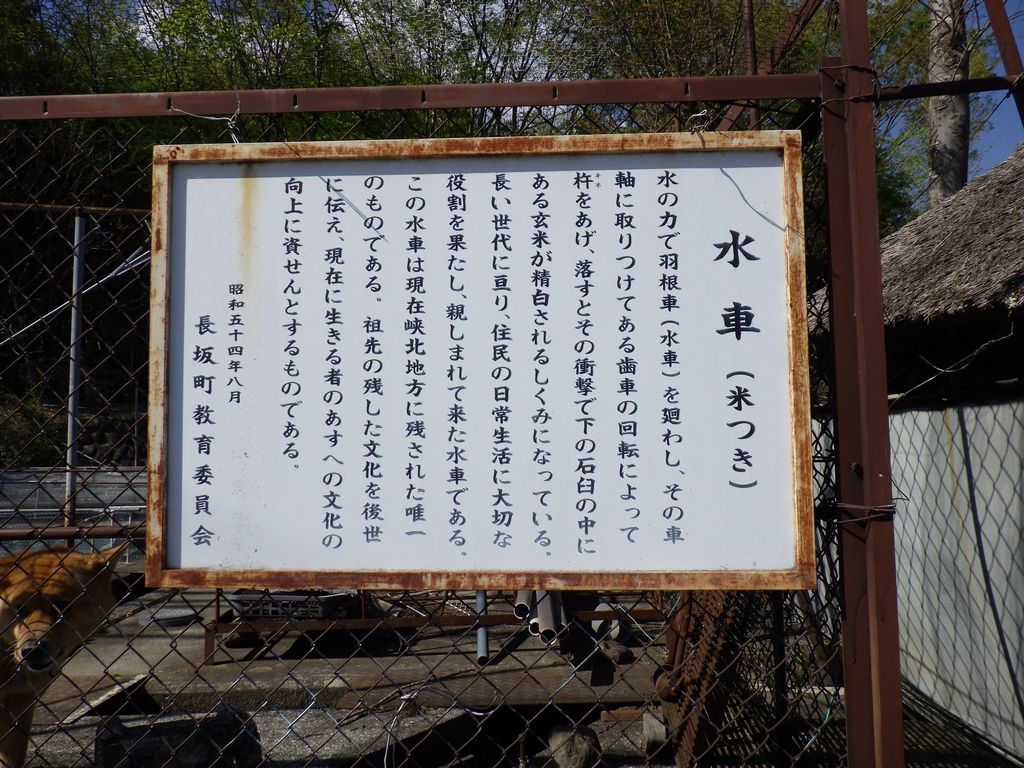 水車（米つき）
水の力で羽根車（水車）を廻わし、その車
軸に取りつけてある歯車の回転によって
杵をあげ、落すとその衝撃で下の石臼の中に
キネ
ある玄米が精白されるしくみになっている。
長い世代に亘り、住民の日常生活に大切な
役割を果たし、親しまれて来た水車である。
この水車は現在峡北地方に残された唯一
のものである。祖先の残した文化を後世
に伝え、現在に生きる者のあすへの文化の
向上に資せんとするものである。
昭和五十四年八月
長坂町教育委員会